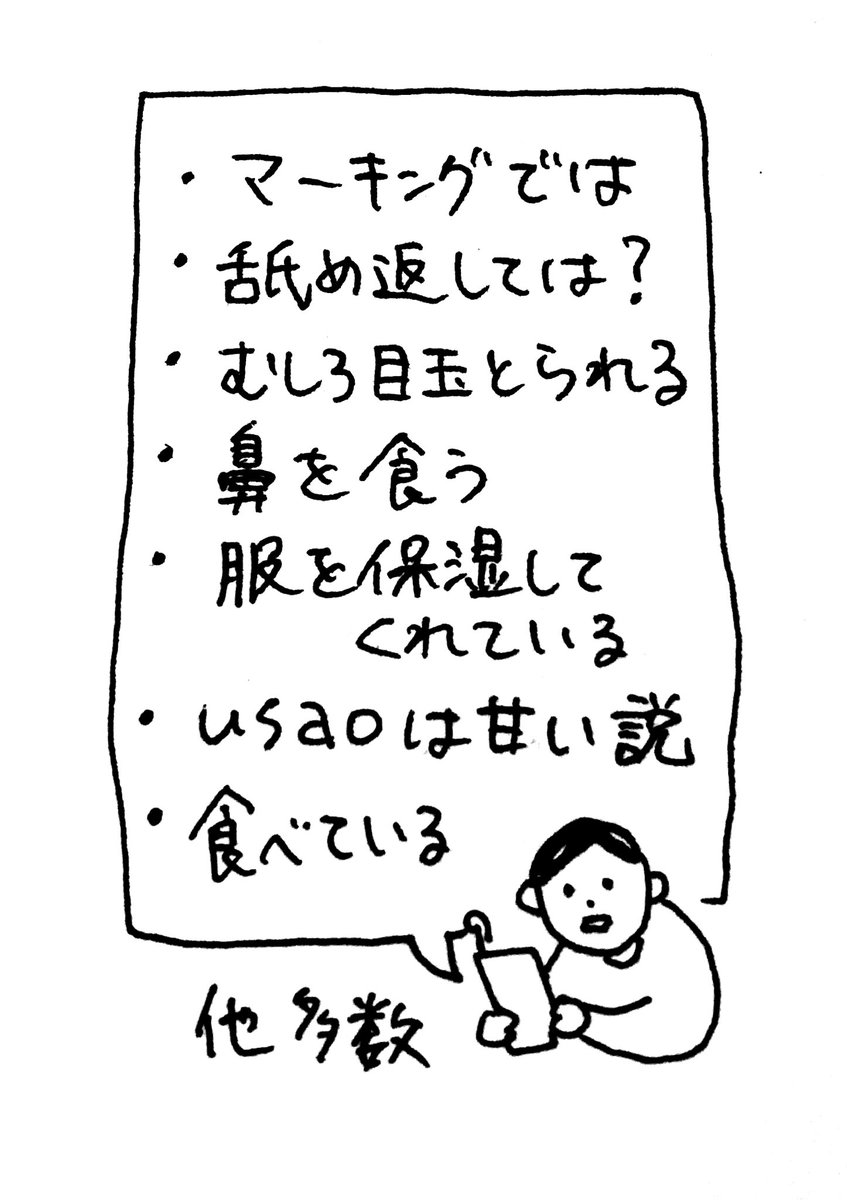 ・マーキングでは
・舐め返しては?
・むしろ目玉とられる
・鼻を食う
・服を保湿して
くれている
・usaoは甘い説
・食べている
他多数